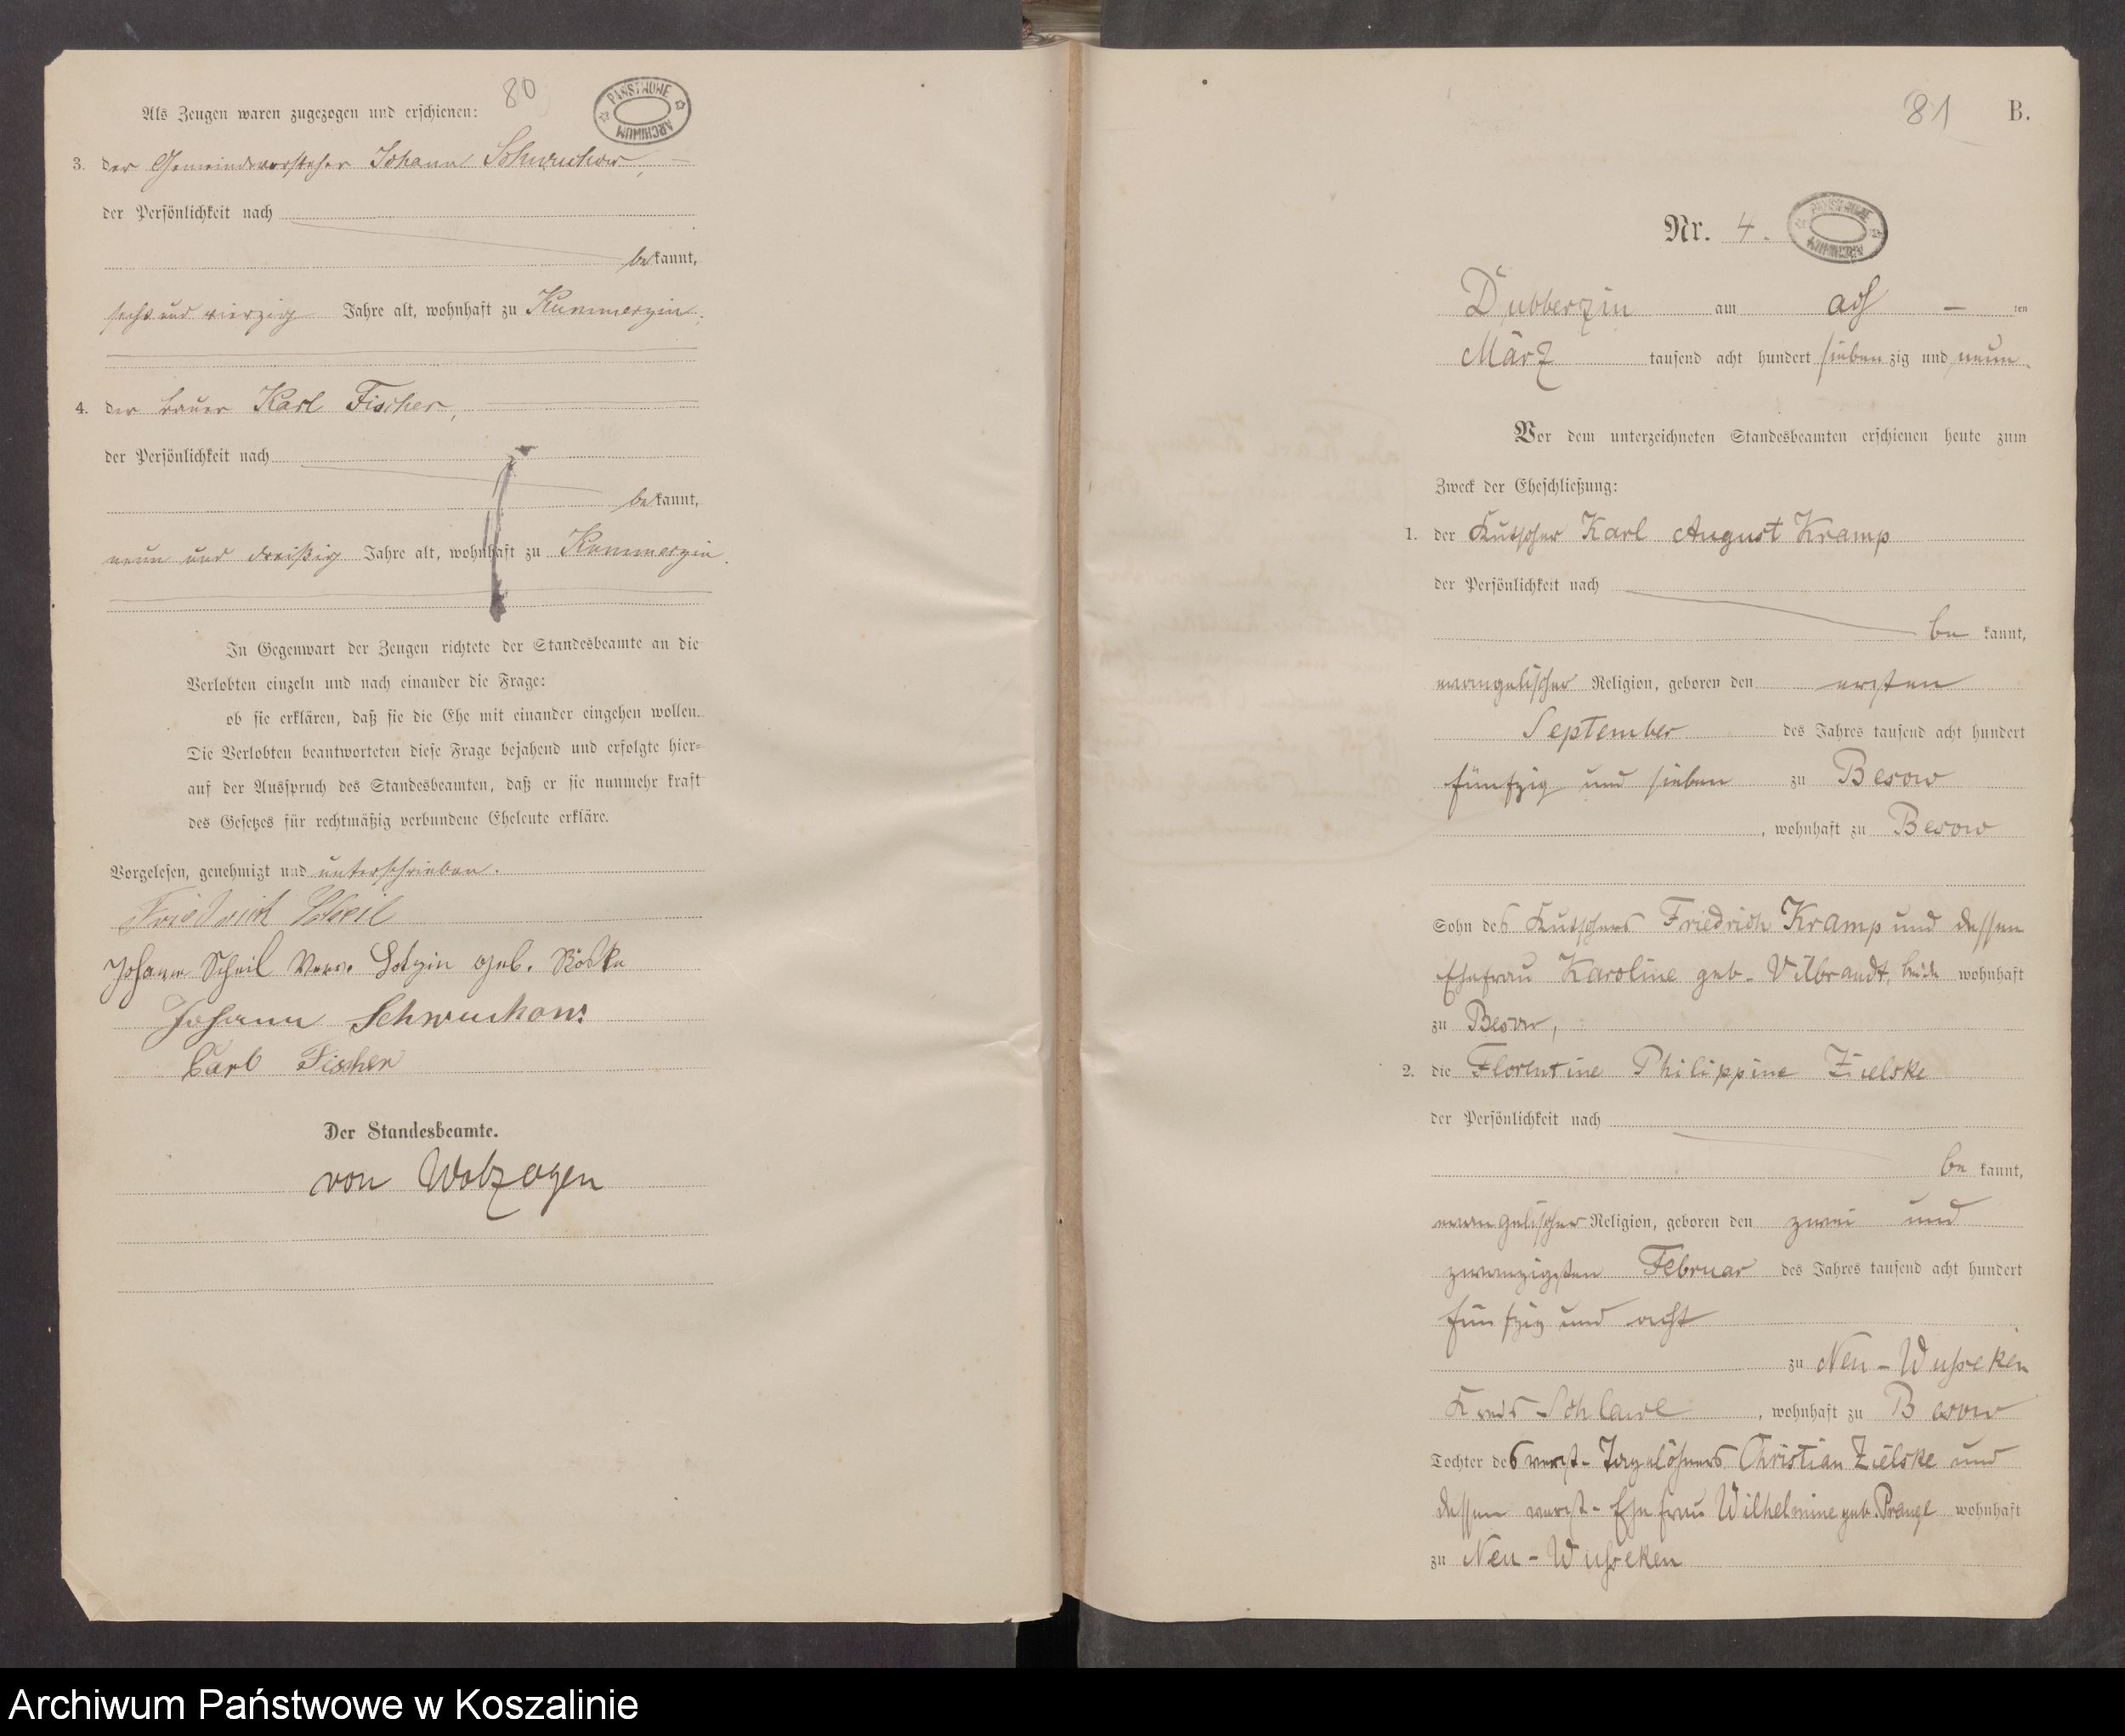 80
PAŃSTWOWE ARCHIWUM
Als Zeugen waren zugezogen und erschienen:
3. der Gemeindevorsteher Johann Schwuchow,
der Persönlichkeit nach
bekannt,
sechs und vierzig Jahre alt, wohnhaft zu Kummerzin.
4. der Bauer Karl Fischer,
der Persönlichkeit nach
bekannt,
neun und dreißig Jahre alt, wohnhaft zu Kummerzin.
In Gegenwart der Zeugen richtete der Standesbeamte an die
Verlobten einzeln und nach einander die Frage:
ob sie erklären, daß sie die Ehe mit einander eingehen wollen.
Die Verlobten beantworteten diese Frage bejahend und erfolgte hier-
auf der Ausspruch des Standesbeamten, daß er sie nunmehr kraft
des Gesetzes für rechtmäßig verbundene Eheleute erkläre.
Vorgelesen, genehmigt und unterschrieben.
Friedrich Scheil
Scheil geb.
Johann Schwuchow
Carl Fischer
Der Standesbeamte.
von Wolzogen
81 B.
PAŃSTWOWE ARCHIWUM
Nr. 4.
Dubberzin am acht - ten
März tausend acht hundert siebenzig und neun.
Vor dem unterzeichneten Standesbeamten erschienen heute zum
Zweck der Eheschließung:
1. der Kutscher Karl August Kramp
der Persönlichkeit nach
be kannt,
evangelischer Religion, geboren den ersten
September des Jahres tausend acht hundert
fünfzig und sieben zu Besow
, wohnhaft zu Besow
Sohn des Kutschers Friedrich Kramp und dessen
Ehefrau Karoline geb. Vilbrandt, beide wohnhaft
zu Besow,
2. die Florentine Philippine Zielske
der Persönlichkeit nach
be kannt,
evangelischer Religion, geboren den zwei und
zwanzigsten Februar des Jahres tausend acht hundert
fünfzig und acht
zu Neu-Wußeken
Kreis Schlawe, wohnhaft zu Besow
Tochter des verst. Tagelöhners Christian Zielske und
dessen verst. Ehefrau Wilhelmine geb. Prange wohnhaft
zu Neu-Wußeken
Archiwum Państwowe w Koszalinie